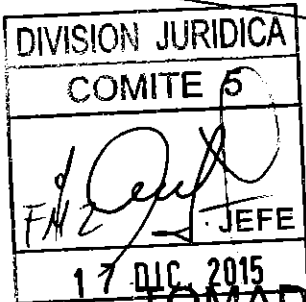 DIVISION JURIDICA
COMITE 5
JEFE
17 DIC. 2015
TOMAR